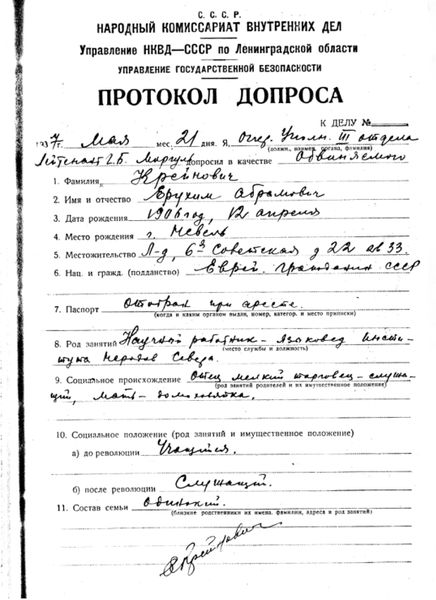 С. С. С. Р.
НАРОДНЫЙ КОМИССАРИАТ ВНУТРЕННИХ ДЕЛ
Управление НКВД—СССР по Ленинградской области
УПРАВЛЕНИЕ ГОСУДАРСТВЕННОЙ БЕЗОПАСНОСТИ
ПРОТОКОЛ ДОПРОСА
К ДЕЛУ №
1937г. Мая мес. 21 дня. Я III отдела
(должн., наимен. органа, фамилия)
Лейтенант ГБ допросил в качестве Обвиняемого
1. Фамилия Крейнович
2. Имя и отчество Ерухим Абрамович
3. Дата рождения 1906 год, 12 апреля
4. Место рождения г. Невель
5. Местожительство Л-д, 6я Советская д 22 кв 33.
6. Нац. и гражд. (подданство) Еврей, гражданин СССР
7. Паспорт Отобран при аресте.
(когда и каким органом выдан, номер, категор. и место приписки)
8. Род занятий Научной работник - языковед Инсти-
(место службы и должность)
тута Народов Севера.
9. Социальное происхождение Отец мелкий торговец - служа-
(род занятий родителей и их имущественное положение)
щий, мать - домохозяйка.
10. Социальное положение (род занятий и имущественное положение)
а) до революции Учащийся.
б) после революции Служащий.
11. Состав семьи Одинокий.
(близкие родственники их имена, фамилии, адреса и род занятий)
Крейнович